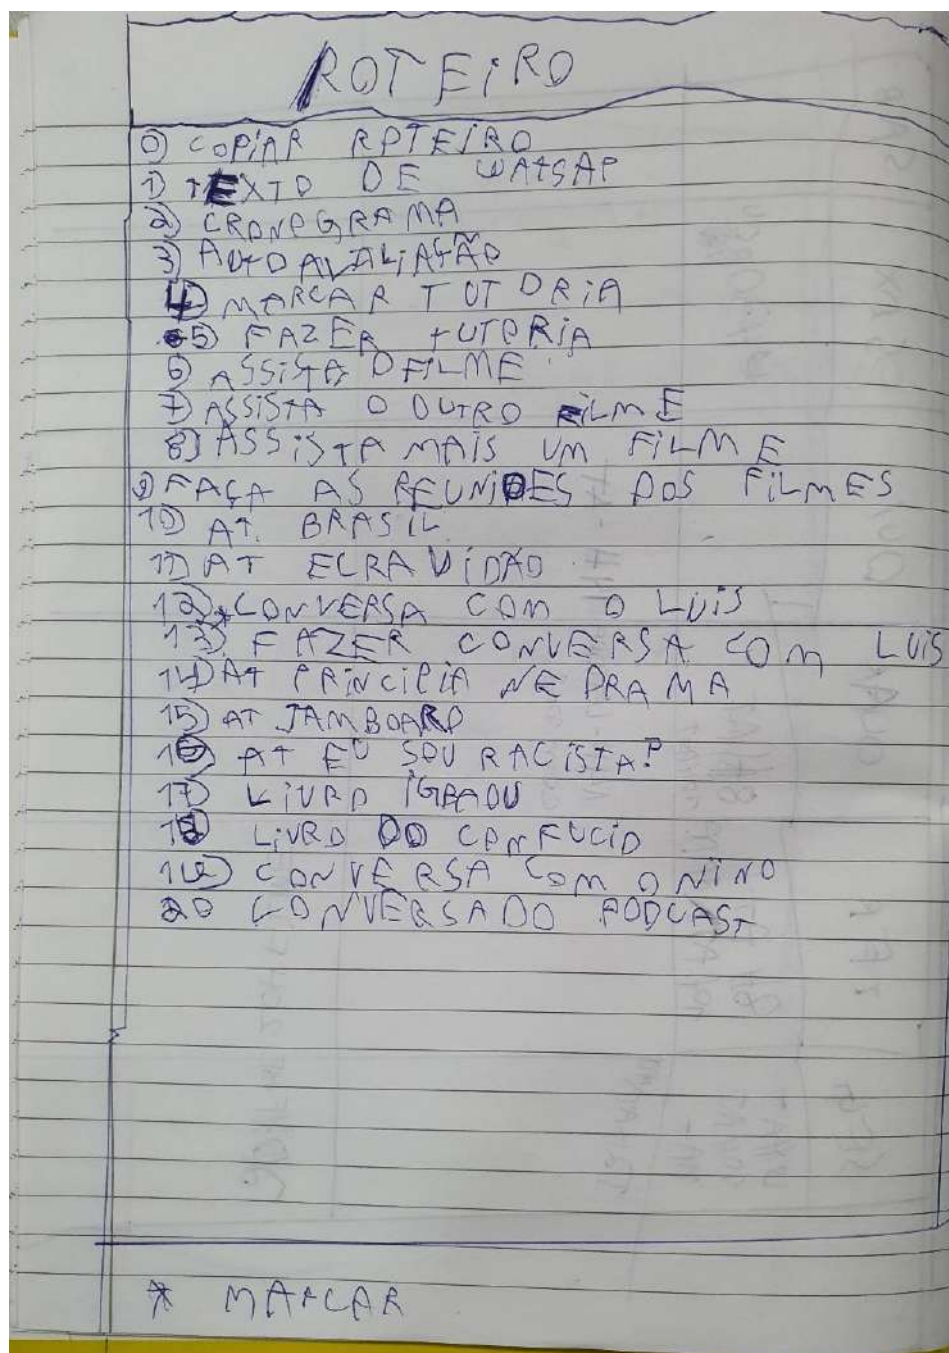 ROTEIRO
0) COPIAR ROTEIRO
1) TEXTO DE WATSAP
2) CRONOGRAMA
3) AUTOAVALIAÇÃO
4) MARCAR TUTORIA
5) FAZER TUTORIA
6) ASSISTA O FILME
7) ASSISTA O OUTRO FILME
8) ASSISTA MAIS UM FILME
9) FAÇA AS REUNIÕES DOS FILMES
10) AT. BRASIL
11) AT ECRAVIDÃO
12) *CONVERSA COM O LUIS
13) FAZER CONVERSA COM LUIS
14) AT PRINCIPIA NE DRAMA
15) AT JAMBOARD
16) AT EU SOU RACISTA?
17) LIVRO
18) LIVRO DO CONFUCIO
19) CONVERSA COM O NINO
20 CONVERSA DO PODCAST
* MARCAR